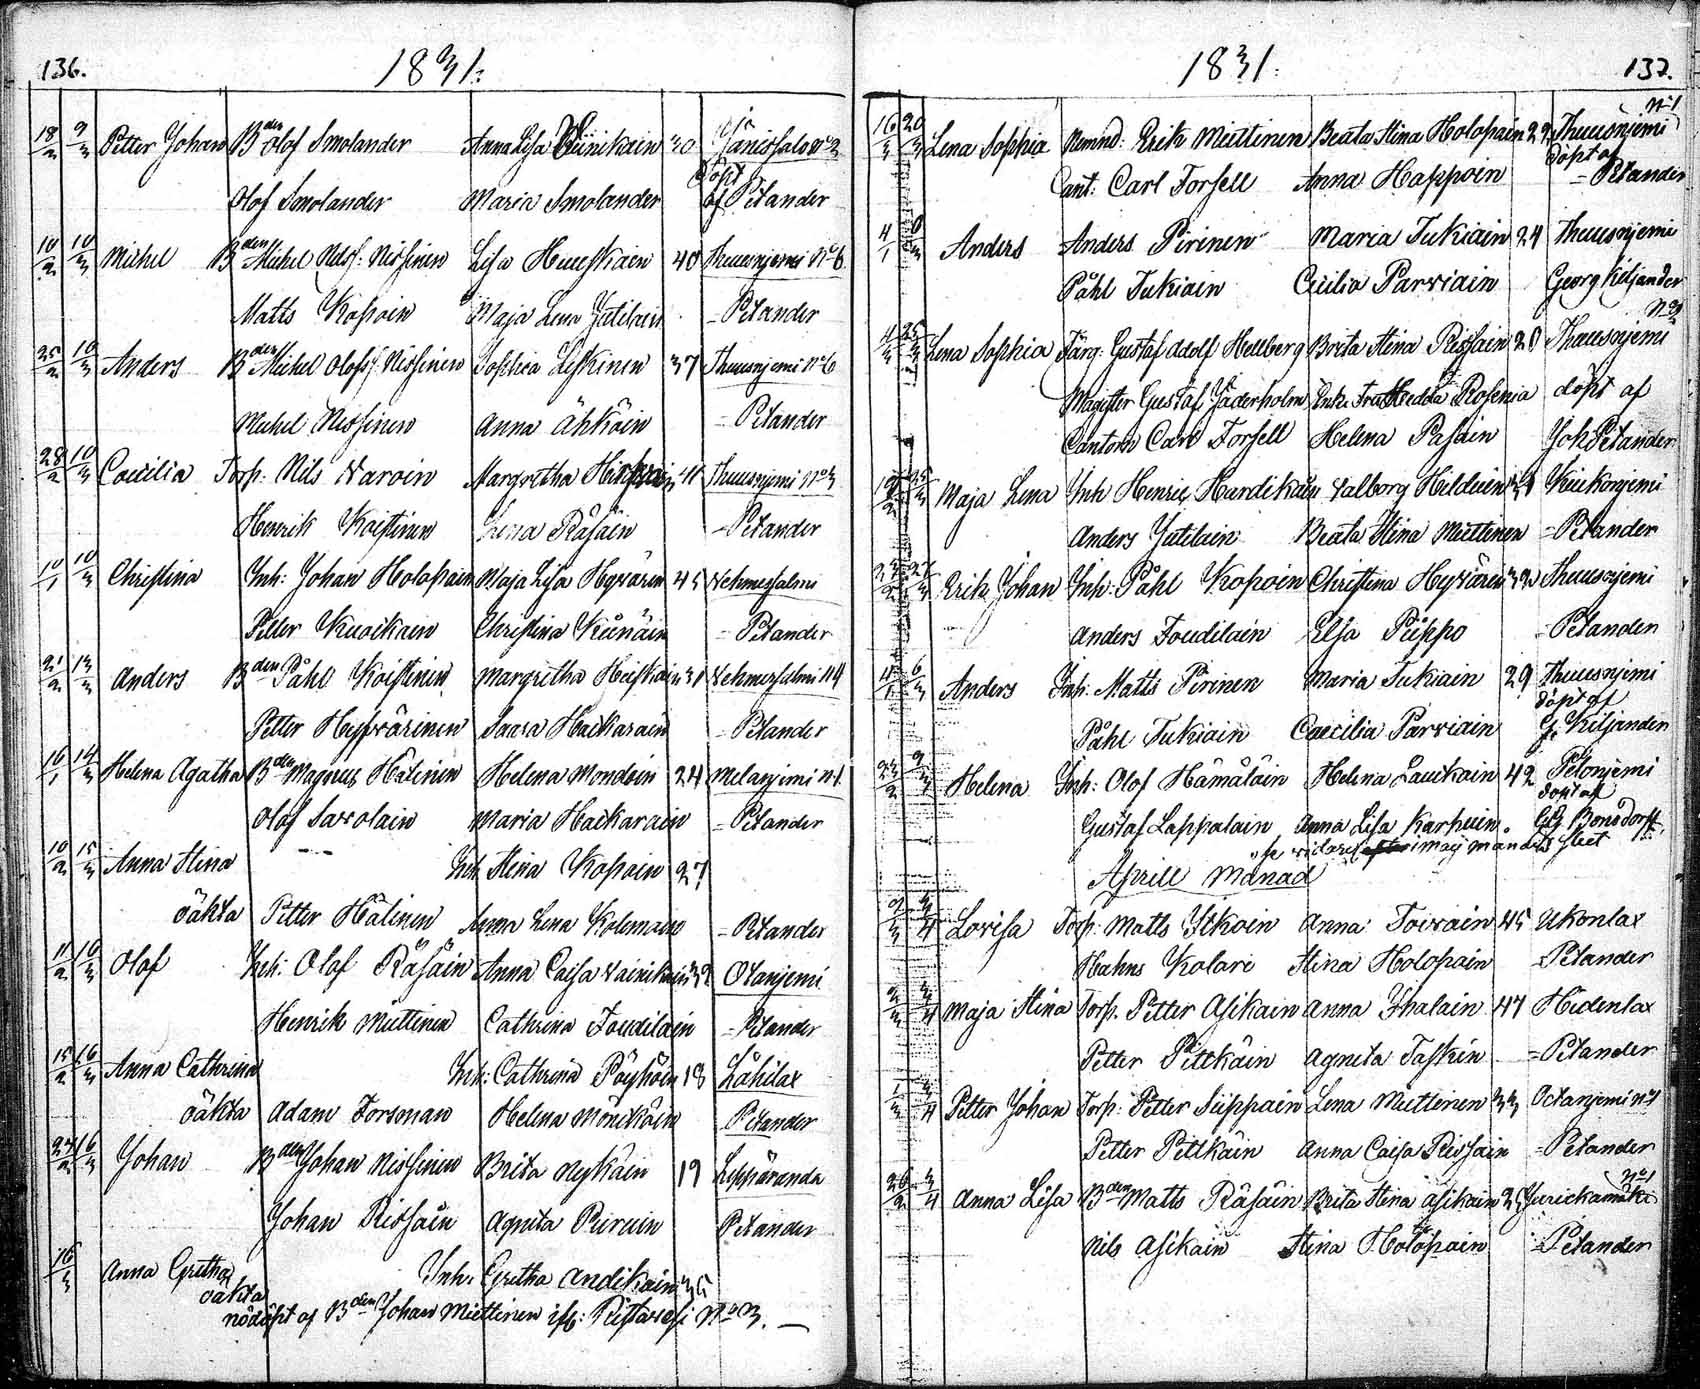 136.
1831.
18/2 9/3 Petter Johan Bden Olof Smolander Anna Lisa Väinikain 40 Jänissalo No 2
döpt
Olof Smolander Maria Smolander af Petander
10/2 10/3 Michel Bden Michel Nilsf: Nissinen Lisa Huuskain 40 Thuusnjemi No 6
Matts Kopoin Maja Lena Jatilain = Petander
25/2 10/3 Anders Bden Michel Olofsf: Nissinen Sophia Leskinen 37 Thuusnjemi No 6
Michel Nissinen Anna Ähköin = Petander
28/2 10/3 Caecilia Torp: Nils Varoin Margretha 41 Thuusnjemi No 3
Henrik Koistinen Lena Räsäin = Petander
10/1 10/3 Christina Inh: Johan Holopain Maja Lisa Hyvärin 45 Vehmersalmi
Petter Kuoikain Christina Künäin = Petander
21/2 13/3 Anders Bden Påhl Koistinen Margretha Heiskain 31 Vehmersalmi N 4
Petter Hyvärinen Saara Hackarain = Petander
16/1 14/3 Helena Agatha Bden Magnus Hätinen Helena Mondein 24 Melanjemi N 1
Olof Savolain Maria Hackarain = Petander
10/2 15/3 Anna Stina Inh Stina Kopain 27
oäkta Petter Hätinen Anna Lena Kolemain = Petander
11/2 16/3 Olof Inh: Olof Räsäin Anna Caisa Vainikain 32 Otanjemi
Henrik Miettinen Cathrina Toudilain = Petander
15/2 16/3 Anna Cathrina Inh: Cathrina Pöyhöin 18 Låhilax
oäkta Adam Forsman Helena Mönkäin Petander
16/3 Johan Bden Johan Nissinen Brita Nyskäin 19 Leppäranda
Johan Rissain Agnita Piruin Petander
16/3 Anna Gretha Inh: Gretha Andikain 35
oäkta
nöddöpt af Bden Johan Miettinen ifr: Riistavesi No 3.
137.
1831.
No 1
16/3 20/3 Lena Sophia Nämnd: Erik Miettinen Beata Stina Holopain 22 Thuusnjemi
döpt af
Cant: Carl Forsell Anna Happoin = Petander
4/1 Anders Anders Pirinen Maria Tukiain 24 Thuusnjemi
Påhl Tukiain Cicilia Parviain Georg Kiljander
25/3 Lena Sophia Färg: Gustaf Adolf Hellberg Brita Stina Rissain 28 Thuusnjemi
Magister Gustaf Jäderholm Enke Fru Hedda Rosenia döpt af
Cantorn Carl Forsell Helena Pasain Joh Petander
25/3 Maja Lena Inh Henric Hardikain Valborg Hilduin Kiukonjemi
Anders Jatilain Beata Stina Miettinen = Petander
27/3 Erik Johan Inh: Påhl Kopoin Christina Hyvärin 32 Thuusnjemi
Anders Toudilain Elsa Püppo = Petander
11/1 6/3 Anders Inh: Matts Pirinen Maria Tukiain 29 Thuusnjemi
döpt af
Påhl Tukiain Caecilia Parviain G. Kiljander
23/2 9/3 Helena Inh: Olof Hämäläin Helena Lauikain 42 Petonjemi
döpt af
Gustaf Lappalain Anna Lisa Karhuin. G.G. Bonsdorff.
se vidare i Maij månads slut
Aprill Månad
2/3 3/4 Lovisa Torp: Matts Itkoin Anna Toivain 45 Ukonlax
Hahns Kolari Stina Holopain = Petander
2/3 3/4 Maja Stina Torp: Petter Asikain Anna Ihalain 47 Hidenlax
Petter Pitkäin Agnita Taskin = Petander
1/3 3/4 Petter Johan Torp: Petter Süppain Lena Miettinen 33 Octanjemi No 7
Petter Pitkäin Anna Caisa Rissain = Petander
No 1
26/2 3/4 Anna Lisa Bden Matts Räsäin Brita Stina Asikain 25 Jurickamäki
Nils Asikain Stina Holopain = Petander